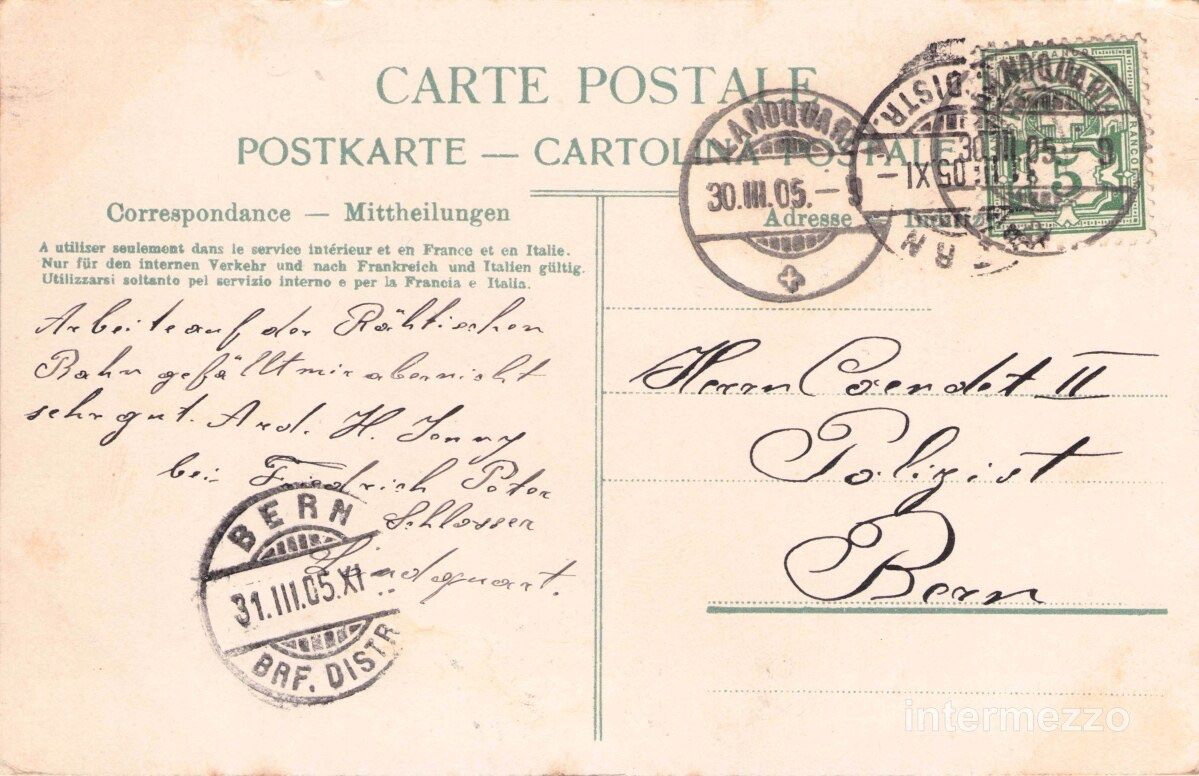 CARTE POSTALE
POSTKARTE — CARTOLINA POSTALE
Correspondance — Mittheilungen
A utiliser seulement dans le service intérieur et en France et en Italie.
Nur für den internen Verkehr und nach Frankreich und Italien gültig.
Utilizzarsi soltanto pel servizio interno e per la Francia e Italia.
Adresse
LANDQUART
30.III.05.–9
LANDQUART
30.III.05.–9
DISTR.
FRANCO
5
Arbeite auf der Rähtischen
Bahn gefällt mir aber nicht
sehr gut. Ard. H. Jenny
bei Friedrich Peter
Schlosser
Landquart.
Herrn Coendet II
Polizist
Bern
BERN
31.III.05.XI
BRF. DISTR
intermezzo